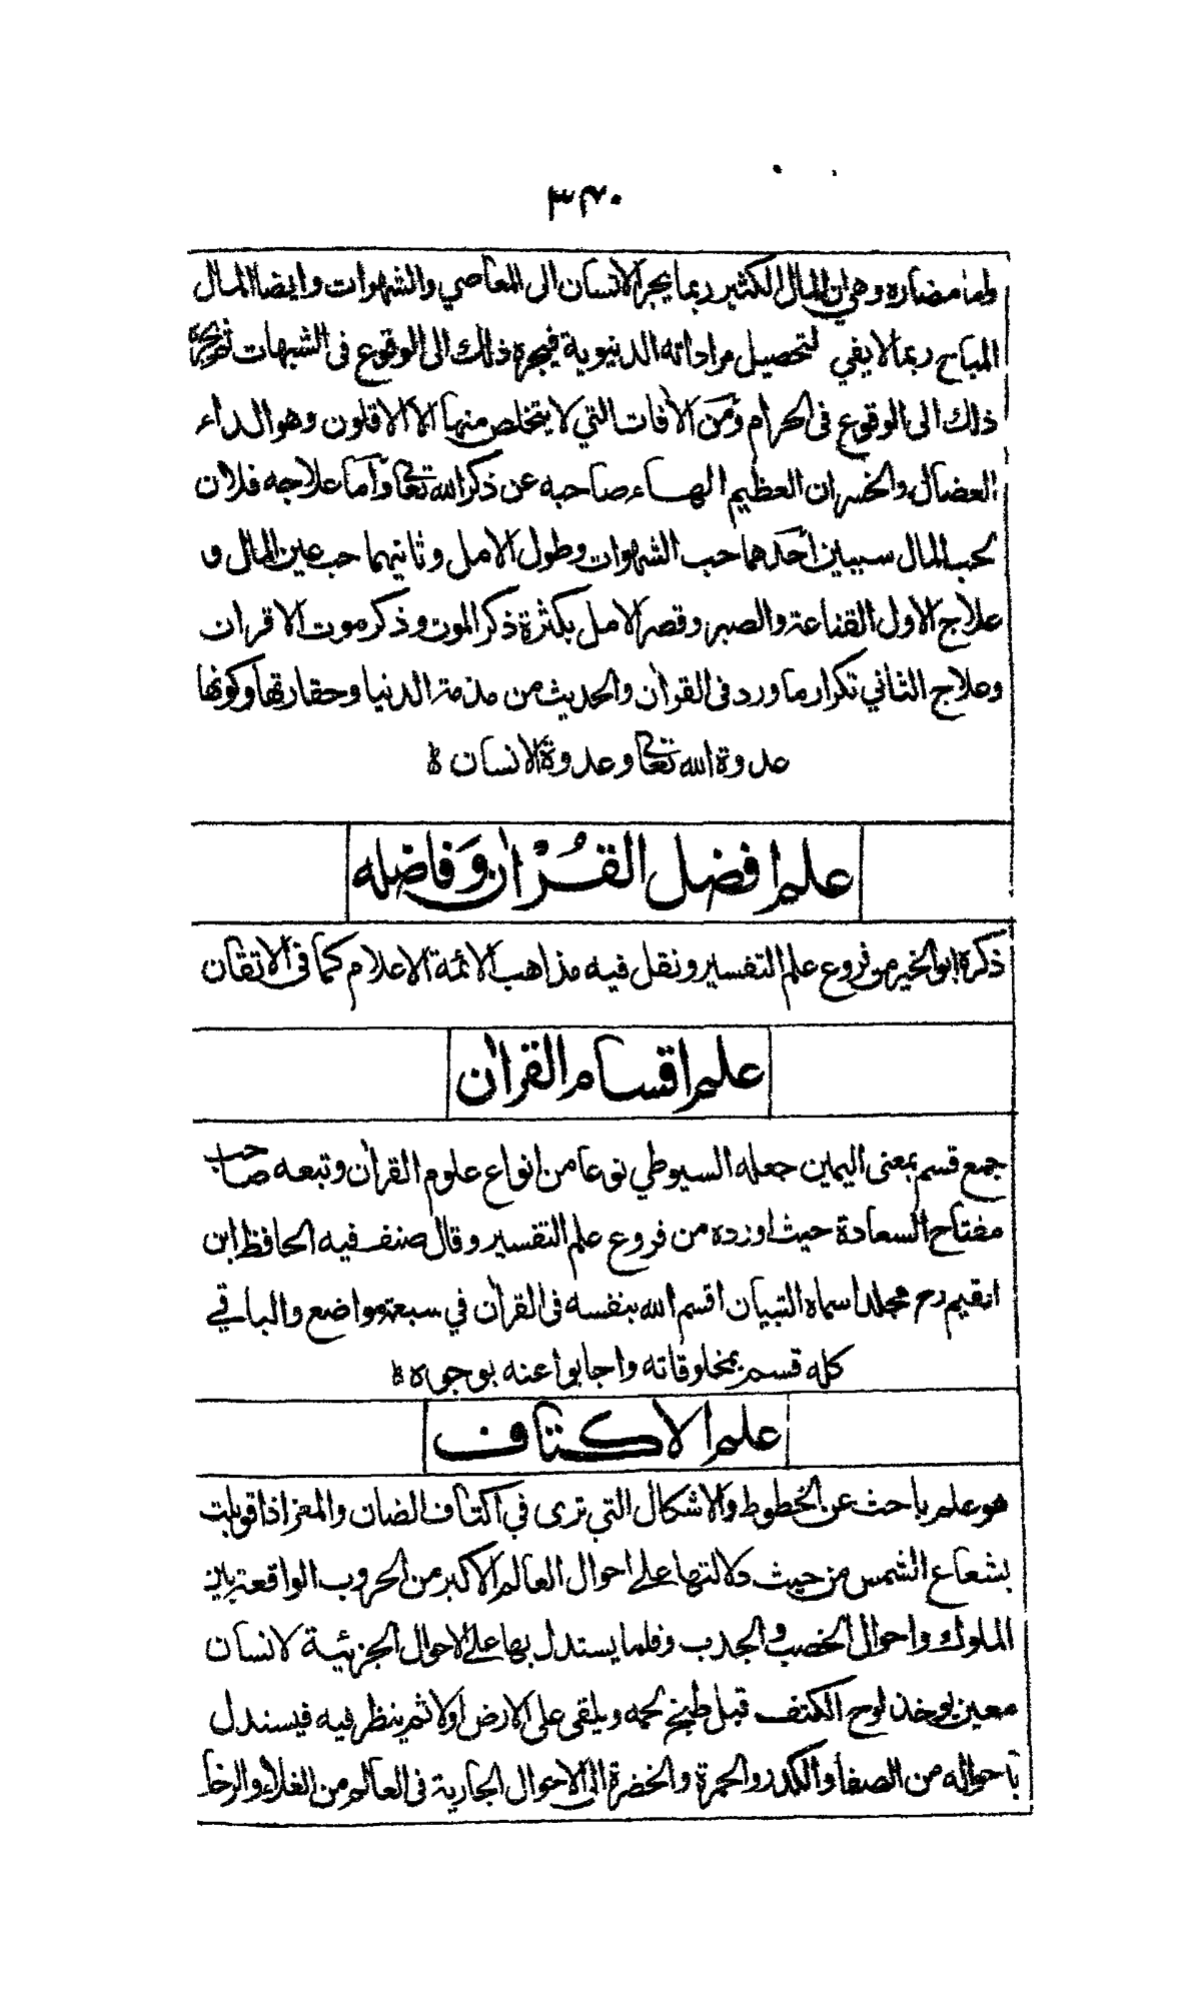 ٣٤٠
واما مضاره وهي ان المال الكثير ربما يجر الانسان الى المعاصي والشهوات وايضا المال
المباح ربما لا يفي لتحصيل مراداته الدنيوية فيجره ذلك الى الوقوع فى الشبهات ثم يجره
ذلك الى الوقوع فى الحرام ومن الآفات التي لا يتخلص منها الا الاقلون وهو الداء
العضال والخسران العظيم الهاء صاحبه عن ذكر الله تعالى وأما علاجه فلان
لحب المال سببين أحدهما حب الشهوات وطول الامل وثانيهما حب عين المال و
علاج الاول القناعة والصبر وقصر الامل بكثرة ذكر الموت وذكر موت الاقران
وعلاج الثاني تكرار ما ورد فى القرآن والحديث من مذمة الدنيا وحقارتها وكونها
عدوة الله تعالى وعدوة الانسان
علم افضل القُرْان وَفاضله
ذكره ابو الخير من فروع علم التفسير ونقل فيه مذاهب الائمة الاعلام كما فى الاتقان
علم اقسام القران
جمع قسم بمعنى اليمين جعله السيوطي نوعا من انواع علوم القران وتبعه صاحب
مفتاح السعادة حيث اورده من فروع علم التفسير وقال صنف فيه الحافظ ابن
القيم رح مجلدا سماه التبيان اقسم الله بنفسه فى القران في سبعة مواضع والباقي
كله قسم بمخلوقاته واجابوا عنه بوجوه
علم الاكتاف
هو علم باحث عن الخطوط والاشكال التي ترى في اكتاف الضان والمعز اذا قوبلت
بشعاع الشمس من حيث دلالتها على احوال العالم الاكبر من الحروب الواقعة بين
الملوك واحوال الخصب والجدب وقلما يستدل بها على الاحوال الجزئية لانسان
معين يوخذ لوح الكتف قبل طبخ لحمه ويلقى على الارض اولا ثم ينظر فيه فيستدل
باحواله من الصفا والكدر والحمرة والخضرة الى الاحوال الجارية فى العالم من الغلاء والرخا